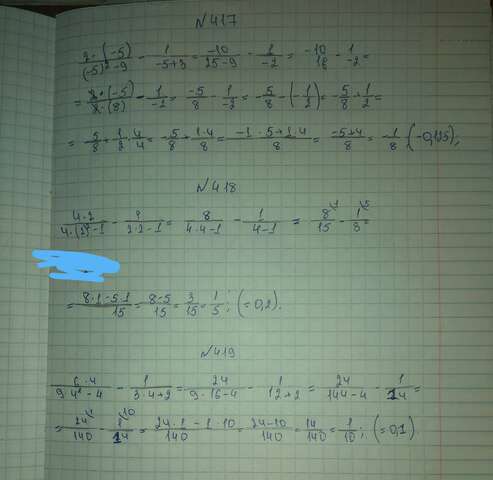 №417
2·(-5)/(-5)²-9 - 1/-5+3 = -10/25-9 - 1/-2 = -10/16 - 1/-2 =
= 2·(-5)/2·(8) - 1/-2 = -5/8 - 1/-2 = -5/8 - (-1/2) = -5/8 + 1/2 =
= -5/8 + 1/2 · 4/4 = -5/8 + 1·4/8 = -1·5+1·4/8 = -5+4/8 = -1/8 (-0,125);
№418
4·2/4·(2)²-1 - 1/2·2-1 = 8/4·4-1 - 1/4-1 = 8/15 - 1/3 =
= 8·1-5·1/15 = 8-5/15 = 3/15 = 1/5; (=0,2).
№419
6·4/9·4²-4 - 1/3·4+2 = 24/9·16-4 - 1/12+2 = 24/144-4 - 1/14 =
= 24/140 - 1/14 = 24·1-1·10/140 = 24-10/140 = 14/140 = 1/10; (=0,1)